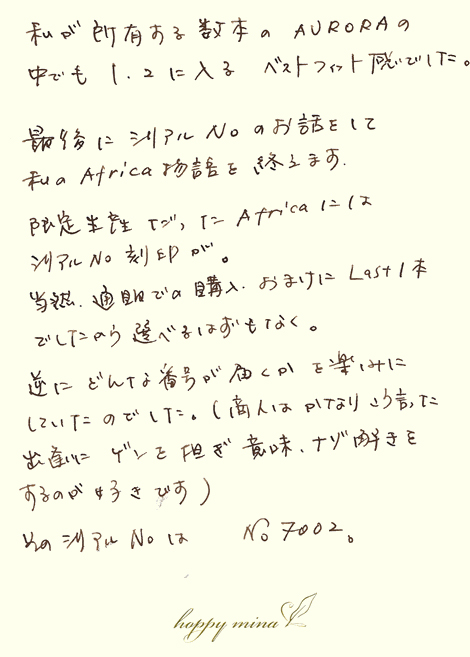 私が所有する数本の AURORAの
中でも 1.2に入る ベストフィット感でした。
最後に シリアル Noのお話をして
私の Africa物語を 終えます.
限定生産でだった Africaには
シリアルNo 刻印が。
当然. 通販での購入. おまけに Last1本
でしたから 選べるはずもなく。
逆に どんな番号が届くかを楽しみに
していたのでした。(商人は かなり こう言った
出逢いに ゲンを担ぎ 意味、ナゾ解きを
するのが好きです)
そのシリアル Noは No 7002。
happy mina